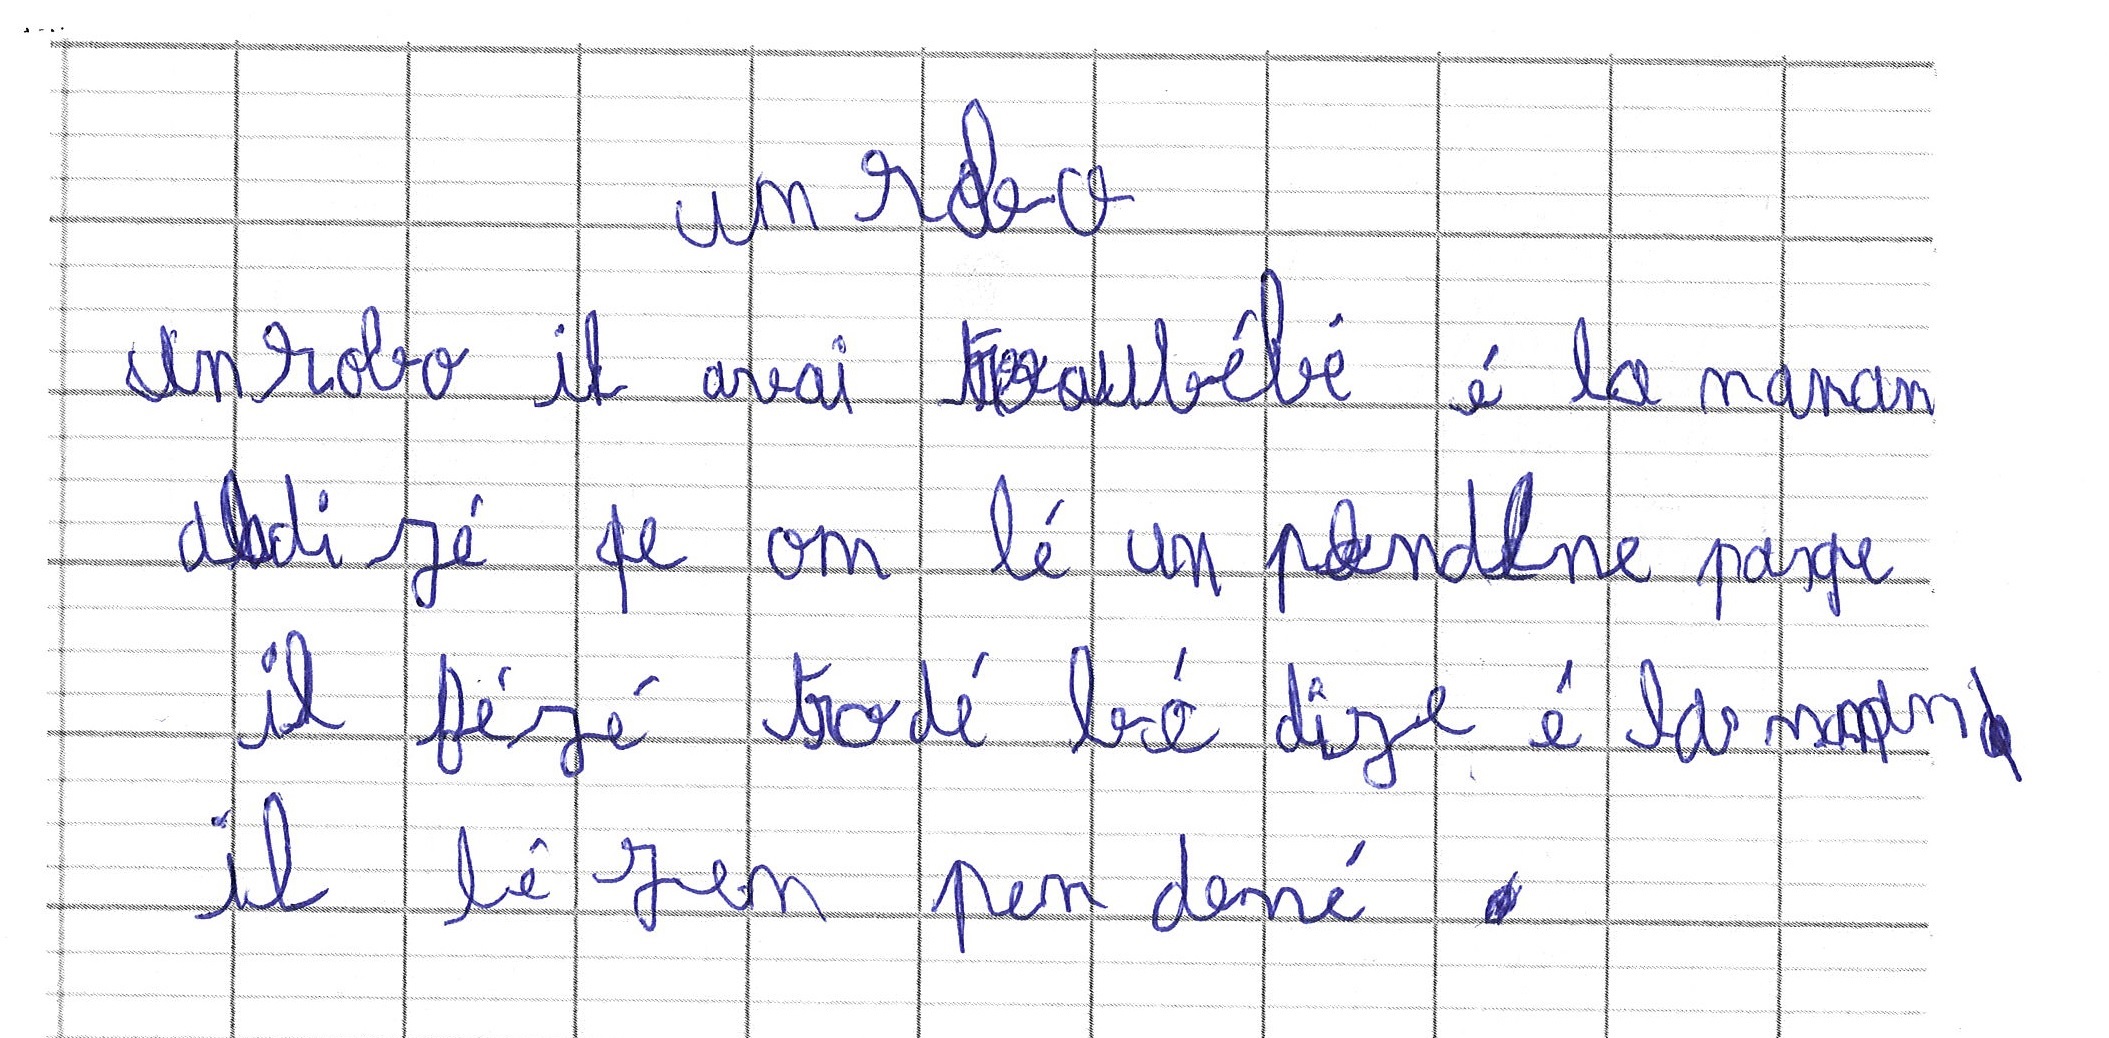 un robo
un robo il avai trou bébé é la manan
didi zé qe om lé un pendene parqe
il fézé trodé bé dize é la
il lé zen pen dené .